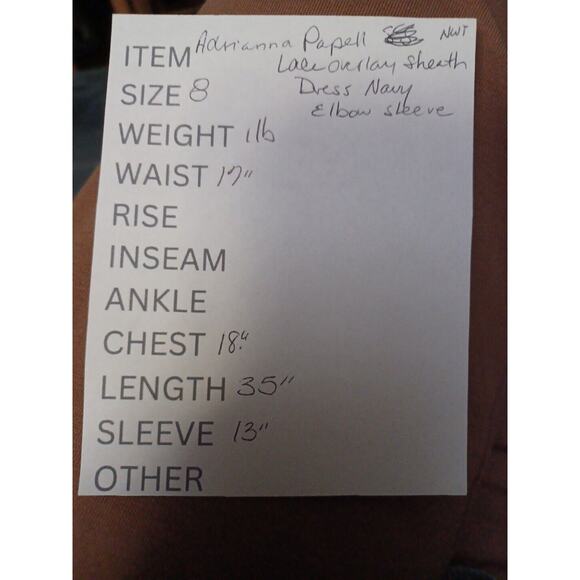 ITEM Adrianna Papell NWT
Lace overlay Sheath
Dress Navy
Elbow sleeve
SIZE 8
WEIGHT 1lb
WAIST 17"
RISE
INSEAM
ANKLE
CHEST 18"
LENGTH 35"
SLEEVE 13"
OTHER